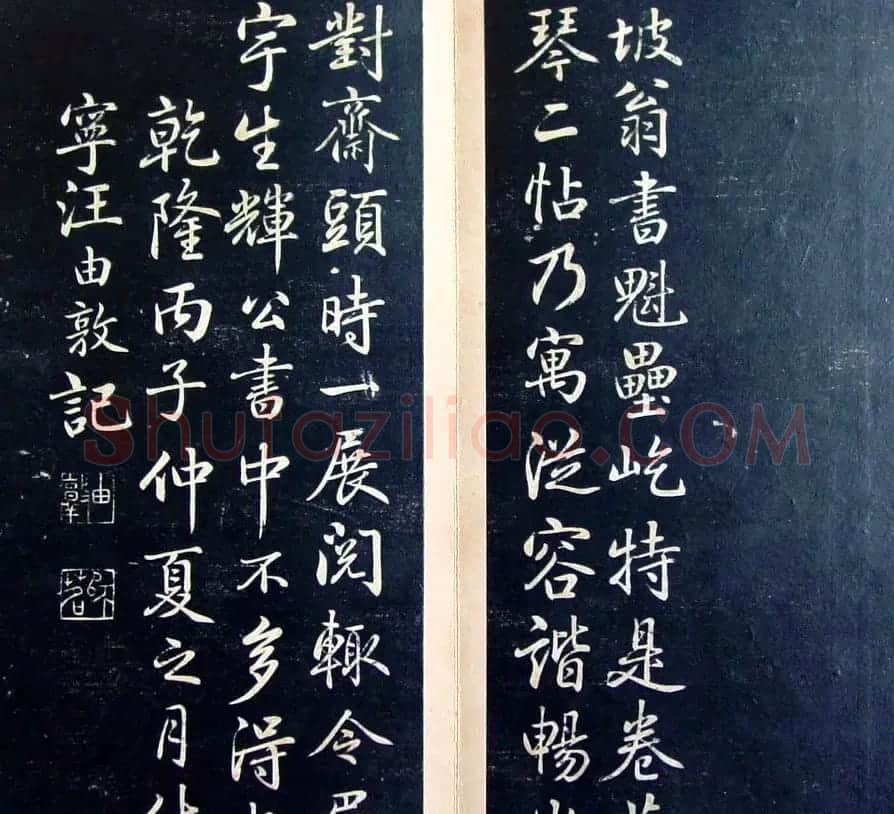 坡翁書魁壘屹特是卷
琴二帖乃寓從容諧暢
對齋頭時一展閱輙令
宇生輝公書中不多得
乾隆丙子仲夏之月
寧汪由敦記
Shufaziliao.COM